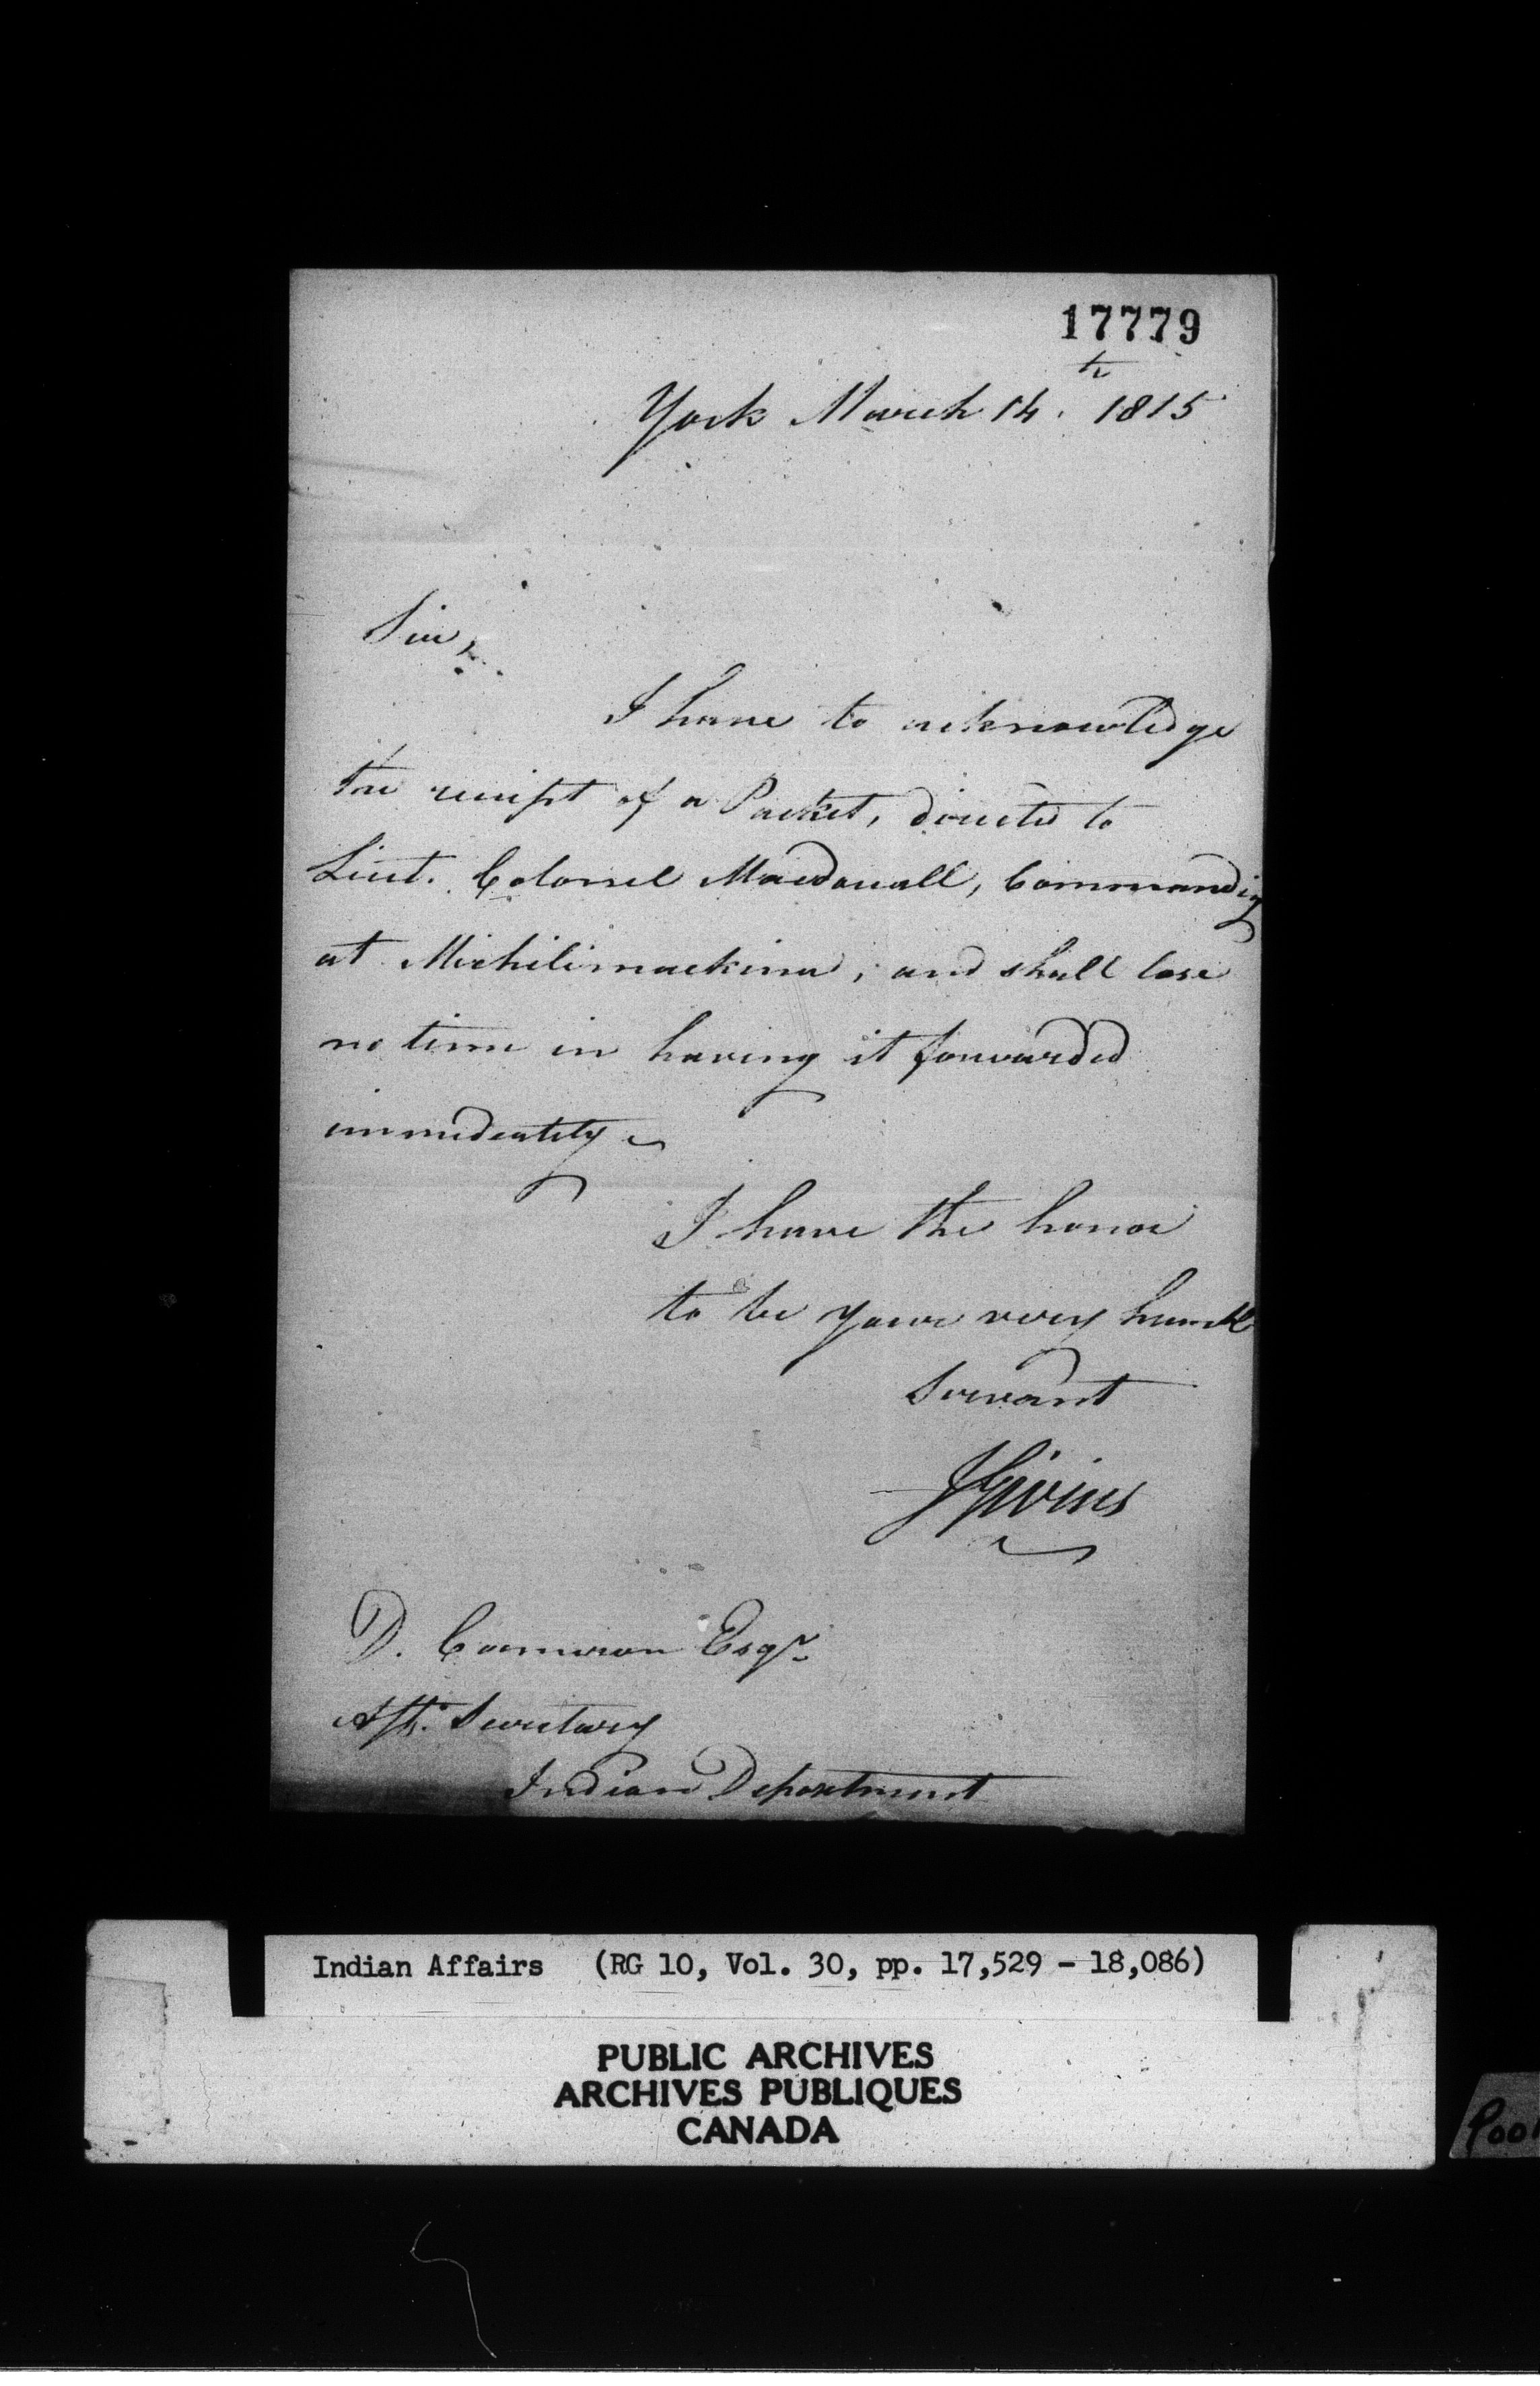 17779
York March 14th. 1815
Sir,
I have to acknowledge
the receipt of a Packet, directed to
Lieut. Colonel Macdouall, Commanding
at Michilimackinac, and shall lose
no time in having it forwarded
immedeately
I have the honor
to be your very humble
Servant
JGivins
D. Cameron Esqr.
Asst. Secretary
Indian Department
Indian Affairs (RG 10, Vol. 30, pp. 17,529 - 18,086)
PUBLIC ARCHIVES
ARCHIVES PUBLIQUES
CANADA